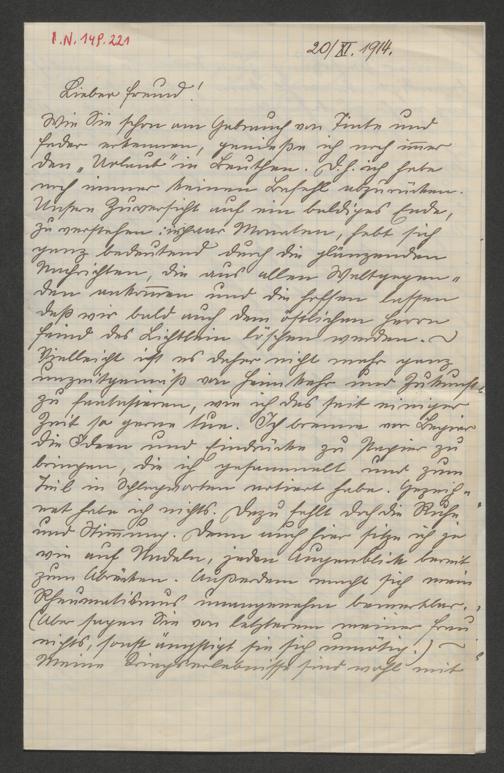 I.N. 149.221
20/XI. 1914.
Lieber Freund!
Wie Sie schon am Gebrauch von Tinte und
Feder erkennen, genieße ich noch immer
den „Urlaub“ in Beuthen. D.h. ich habe
noch immer keinen Befehl abzurücken.
Unsere Zuversicht auf ein baldiges Ende,
zu verstehen: in paar Monaten, hebt sich
ganz bedeutend durch die glänzenden
Nachrichten, die aus allen Weltgegen-
den ankommen und die hoffen lassen
daß wir bald auch dem östlichen Herrn
Feind das Lichtlein löschen werden. ~
Vielleicht ist es daher nicht mehr ganz
unzeitgemäß von Heimkehr und Zukunft
zu fantasieren, wie ich das seit einiger
Zeit so gerne tue. Ich brenne vor Begier
die Ideen und Eindrücke zu Papier zu
bringen, die ich gesammelt und zum
Teil in Schlagworten notiert habe. Gezeich-
net habe ich nichts. Dazu fehlt doch die Ruhe
und Stimmung. Denn auch hier sitze ich ja
wie auf Nadeln, jeden Augenblick bereit
zum Abrücken. Außerdem macht sich mein
Rheumatismus unangenehm bemerkbar.
(Aber sagen Sie von letzterem meiner Frau
nichts, sonst ängstigt sie sich unnötig.) ~
Meine Kriegserlebnisse sind wohl mit